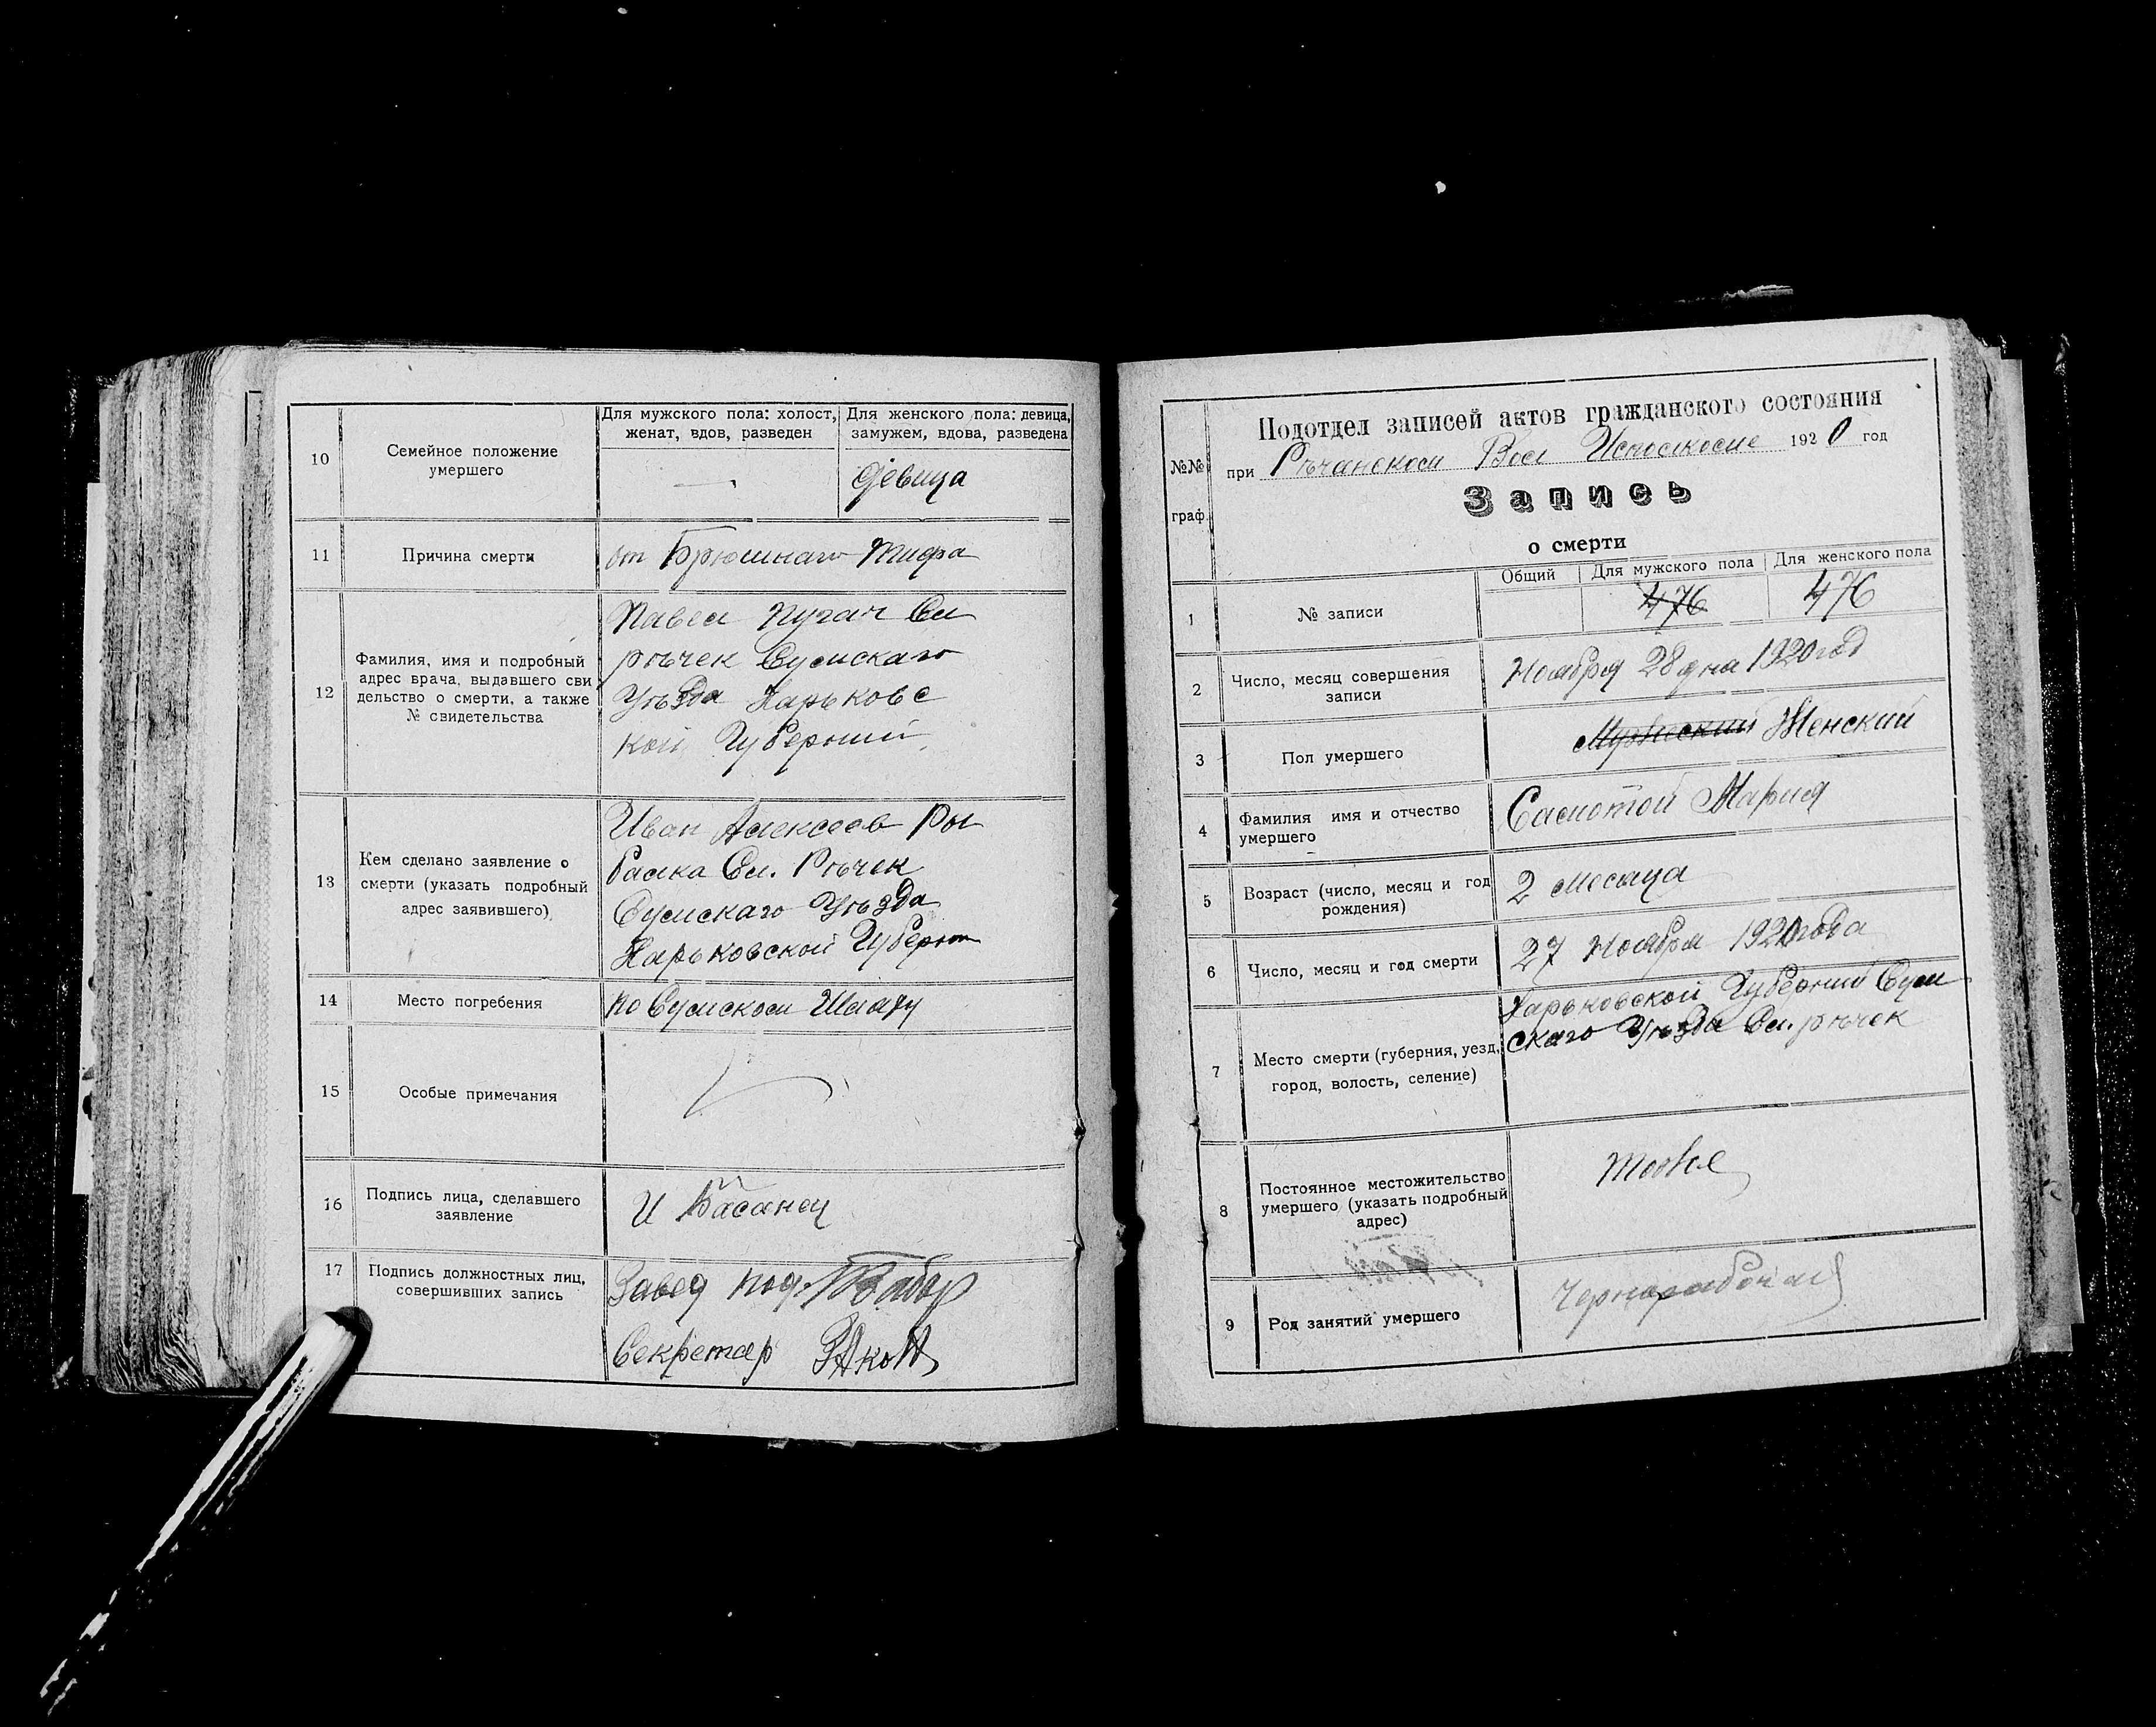 10
Семейное положение
умершего
Для мужского пола: холост,
женат, вдов, разведен
Для женского пола: девица,
замужем, вдова, разведена
девица
11
Причина смерти
от Брюшнаго тифа
12
Фамилия, имя и подробный
адрес врача, выдавшего сви
дельство о смерти, а также
№ свидетельства
Павел Пугач Сл
рѣчек Сумскаго
Уѣзда Харьковс
кой Губернии
13
Кем сделано заявление о
смерти (указать подробный
адрес заявившего)
Иван Алексеев Ры
балка Сл. Рѣчек
Сумскаго Уѣзда
Харьковской Губерн
14
Место погребения
по Сумском Шляху
15
Особые примечания
16
Подпись лица, сделавшего
заявление
И Басанец
17
Подпись должностных лиц,
совершивших запись
Завед под.
Секретар
№№
граф.
Подотдел записей актов гражданского состояния
при Рѣчанском Вол Исполкоме 1920 год
Запись
о смерти
Общий
Для мужского пола
Для женского пола
1
№ записи
476
476
2
Число, месяц совершения
записи
Ноября 28 дна 1920 год
3
Пол умершего
Мужеский Женский
4
Фамилия имя и отчество
умершего
Самотой Мария
5
Возраст (число, месяц и год
рождения)
2 месяца
6
Число, месяц и год смерти
27 Ноября 1920 года
7
Место смерти (губерния, уезд,
город, волость, селение)
Харьковской Губернии Сум
скаго Уѣзда Сл. рѣчек
8
Постоянное местожительство
умершего (указать подробный
адрес)
тоже
9
Род занятий умершего
Чернарабочая